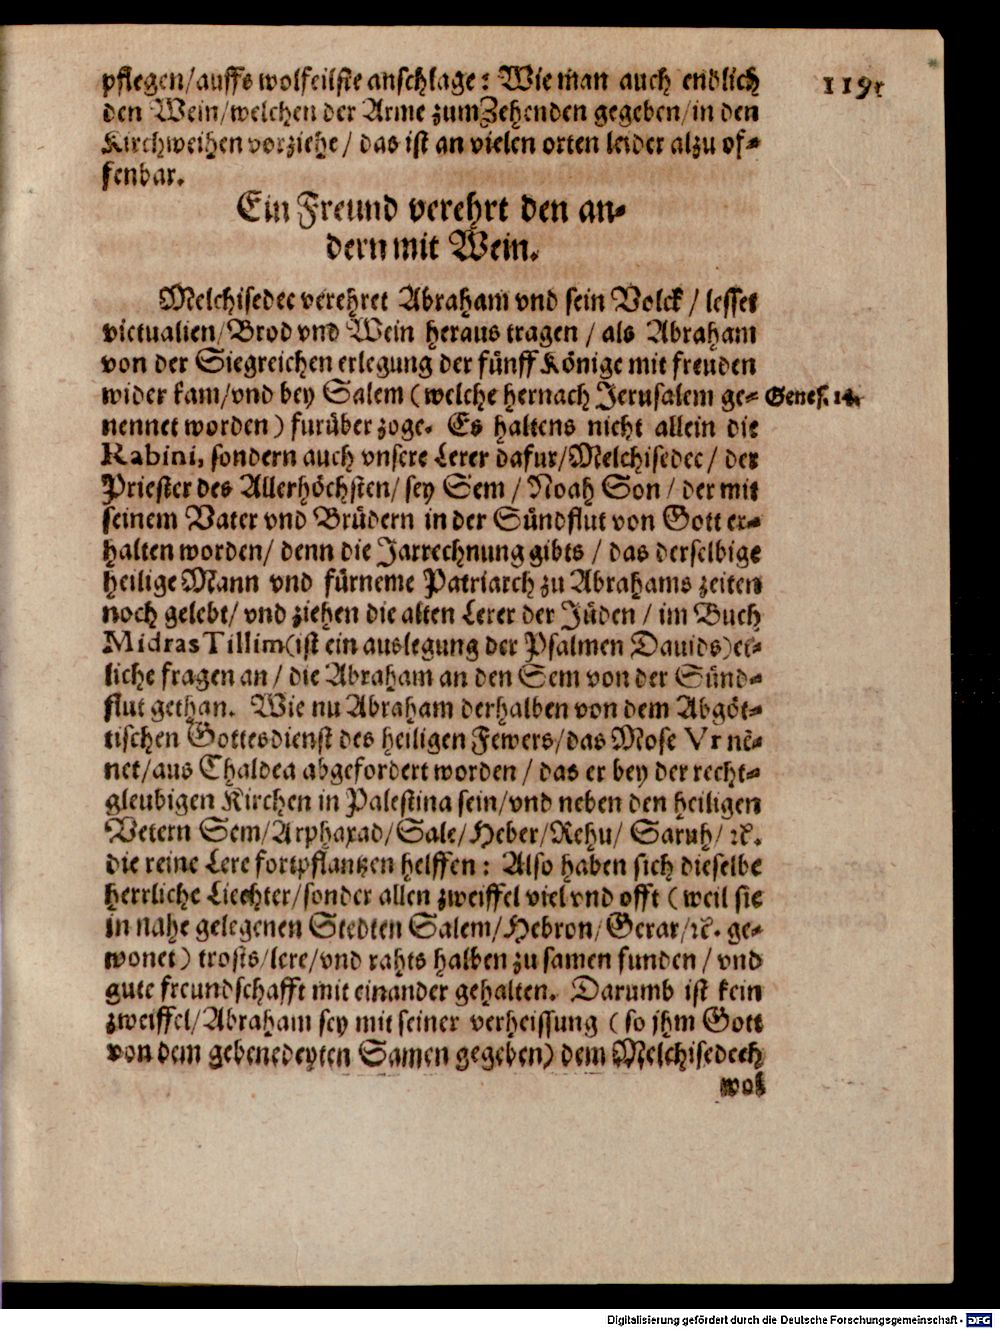 pflegen/auffs wolfeilste anschlage: Wie man auch endlich
119
den Wein/welchen der Arme zum Zehenden gegeben/in den
Kirchweihen vorziehe/ das ist an vielen orten leider alzu of-
fenbar.
Ein Freund verehrt den an-
dern mit Wein.
Melchisedec verehret Abraham vnd sein Volck / lesset
victualien/Brod vnd Wein heraus tragen / als Abraham
von der Siegreichen erlegung der fünff Könige mit freuden
wider kam/vnd bey Salem (welche hernach Jerusalem ge-
Genes. 14.
nennet worden) furüber zoge. Es haltens nicht allein die
Rabini, sondern auch vnsere Lerer dafur/Melchisedec/ der
Priester des Allerhöchsten/ sey Sem / Noah Son / der mit
seinem Vater vnd Brüdern in der Sündflut von Gott er-
halten worden/ denn die Jarrechnung gibts / das derselbige
heilige Mann vnd fürneme Patriarch zu Abrahams zeiten
noch gelebt/ vnd ziehen die alten Lerer der Jüden / im Buch
Midras Tillim(ist ein auslegung der Psalmen Dauids)et-
liche fragen an / die Abraham an den Sem von der Sünd-
flut gethan. Wie nu Abraham derhalben von dem Abgöt-
tischen Gottesdienst des heiligen Fewers/das Mose Vr nē-
net/aus Chaldea abgefordert worden / das er bey der recht-
gleubigen Kirchen in Palestina sein/vnd neben den heiligen
Vetern Sem/Arphaxad/Sale/Heber/Rehu/ Saruh/ ꝛc.
die reine Lere fortpflantzen helffen: Also haben sich dieselbe
herrliche Liechter/sonder allen zweiffel viel vnd offt (weil sie
in nahe gelegenen Stedten Salem/Hebron/Gerar/ꝛc. ge-
wonet) trosts/lere/vnd rahts halben zu samen funden / vnd
gute freundschafft mit einander gehalten. Darumb ist kein
zweiffel/Abraham sey mit seiner verheissung (so jhm Gott
von dem gebenedeyten Samen gegeben) dem Melchisedech
wol
Digitalisierung gefördert durch die Deutsche Forschungsgemeinschaft - DFG